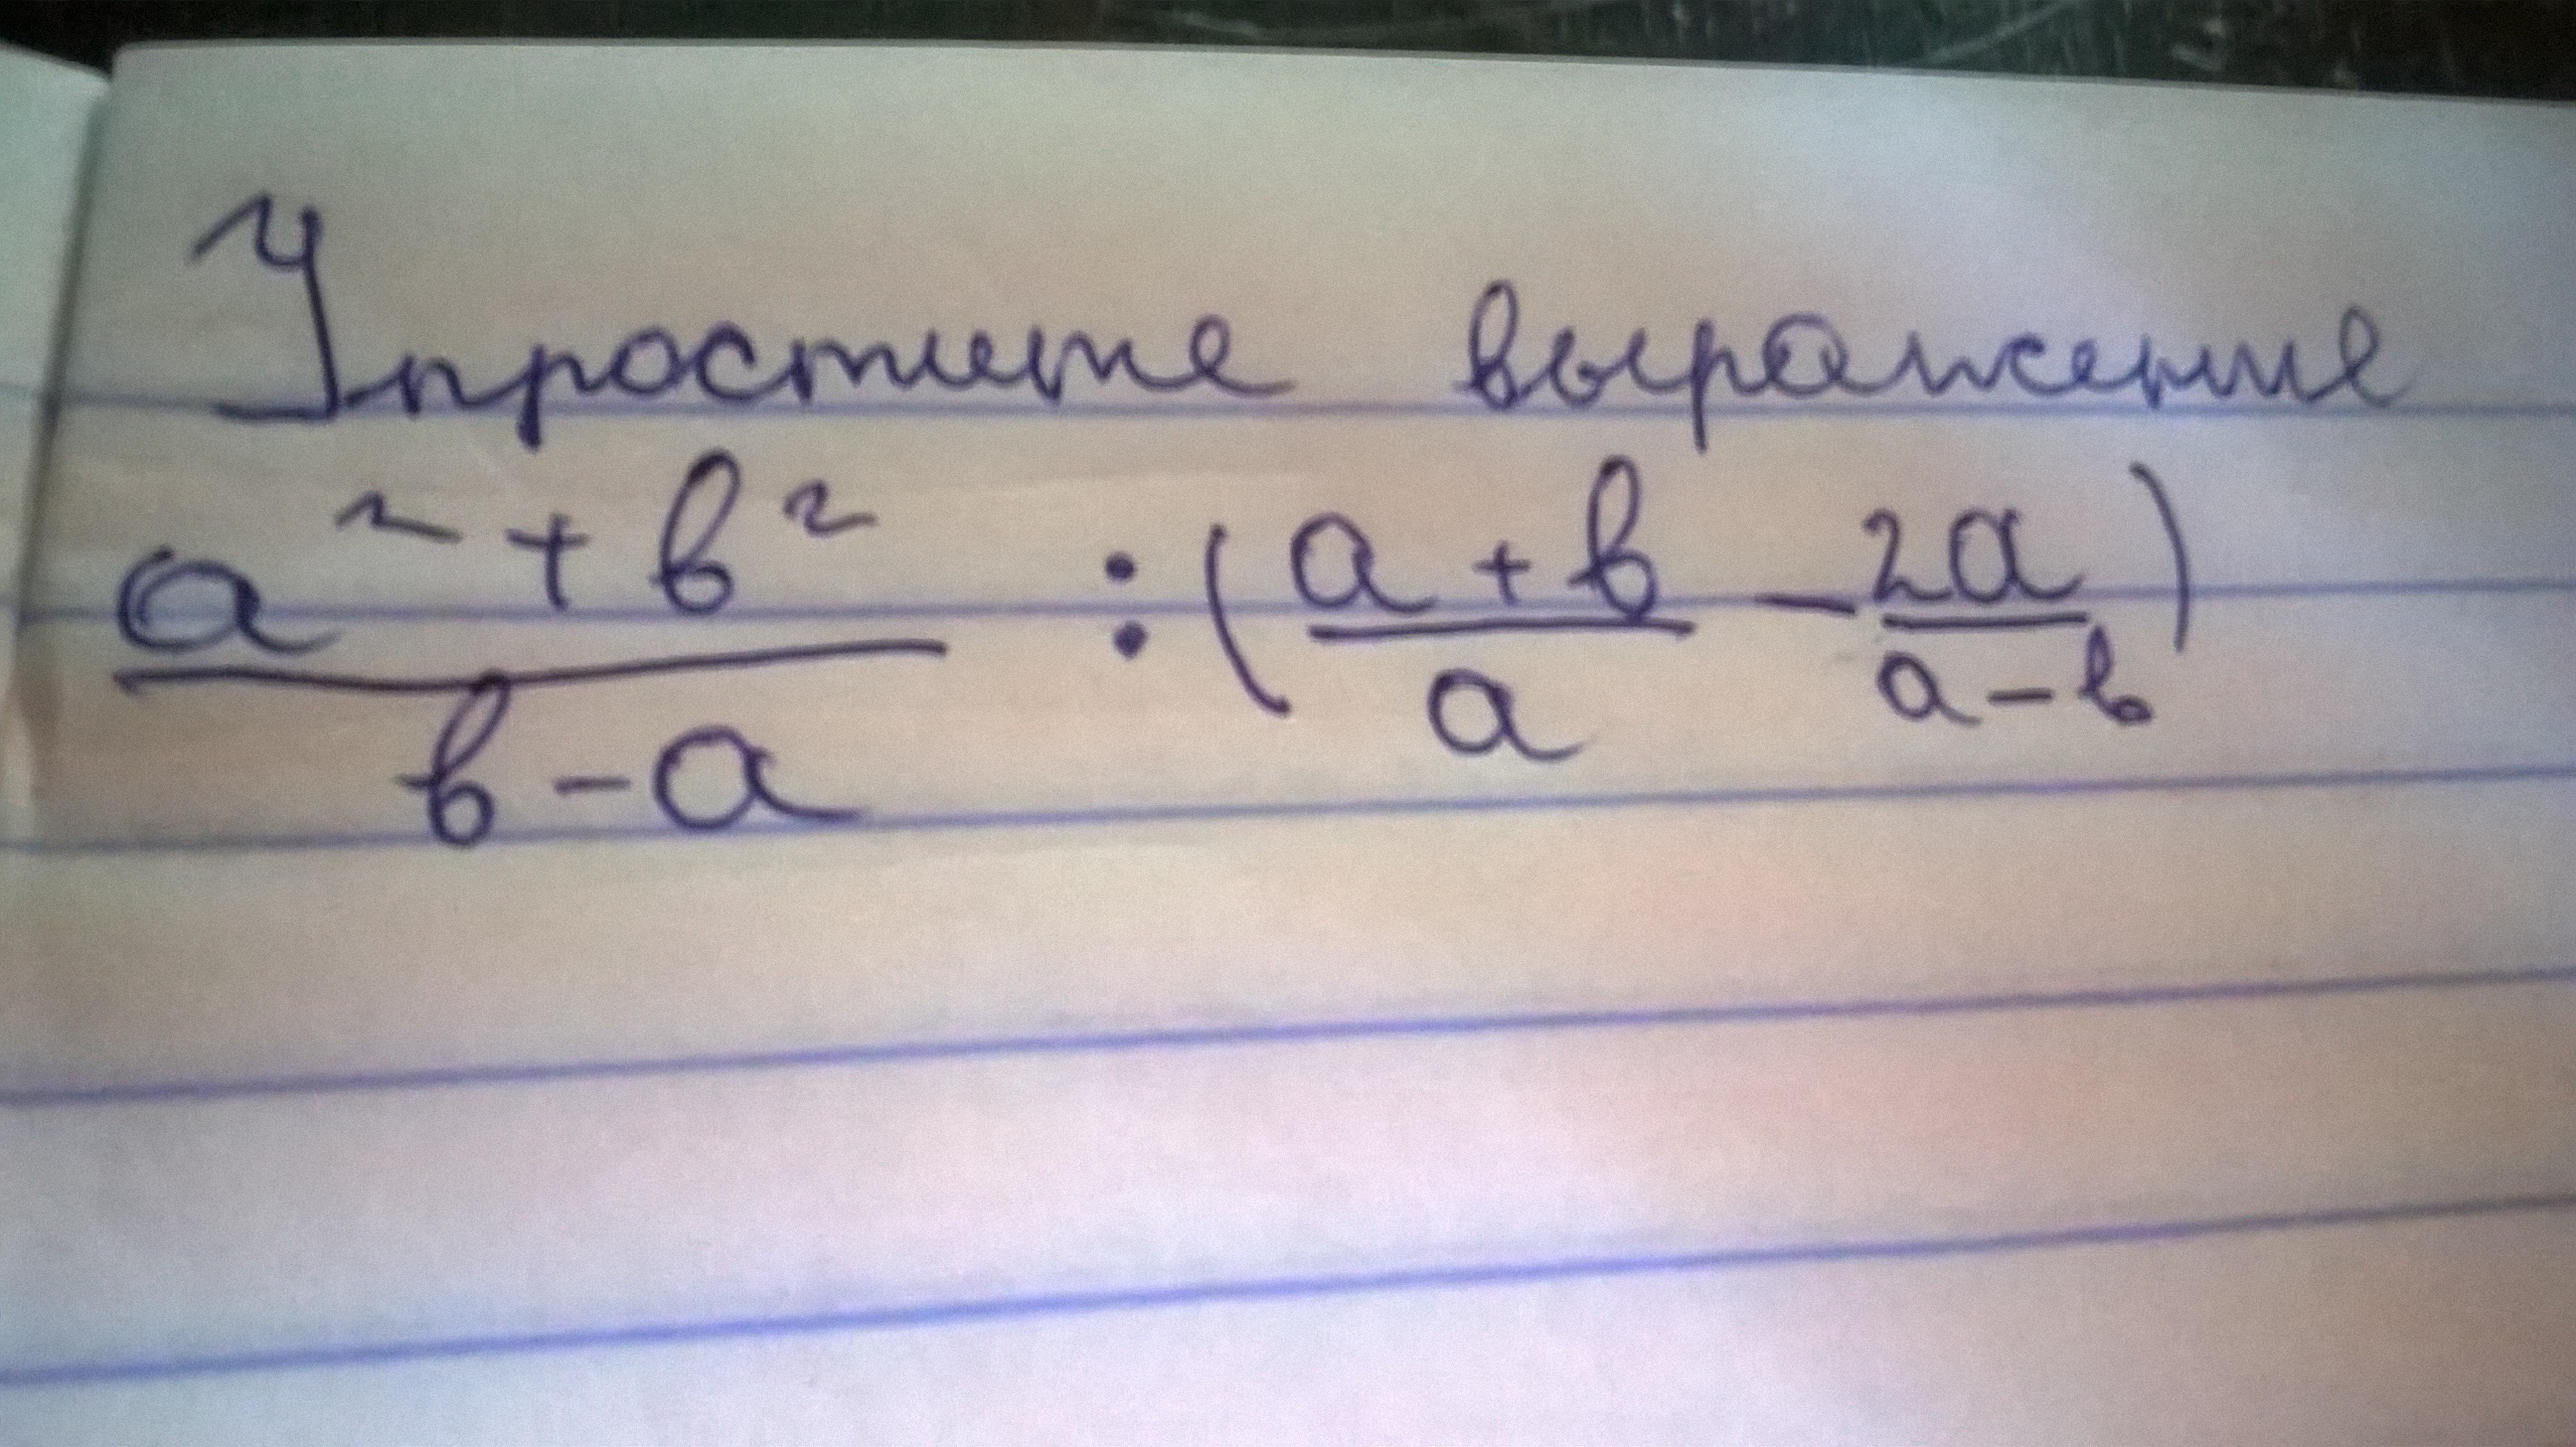 Упростите выражение
(a² + b²)/(b - a) : ((a + b)/a - 2a/(a - b))